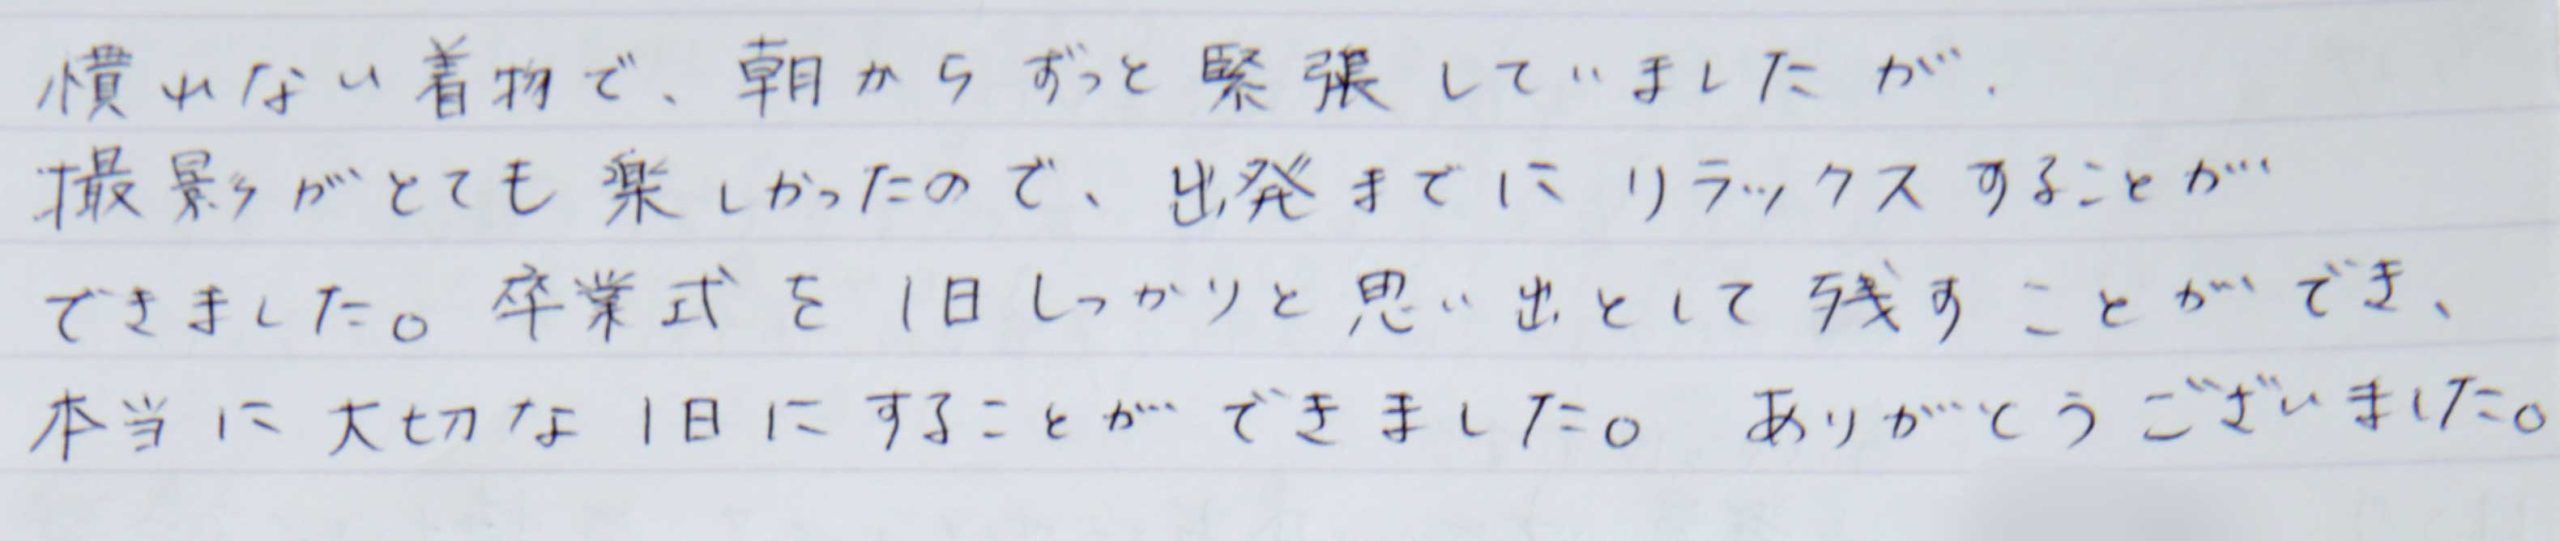 慣れない着物で、朝からずっと緊張していましたが、
撮影がとても楽しかったので、出発までにリラックスすることが
できました。卒業式を1日しっかりと思い出として残すことができ、
本当に大切な1日にすることができました。ありがとうございました。